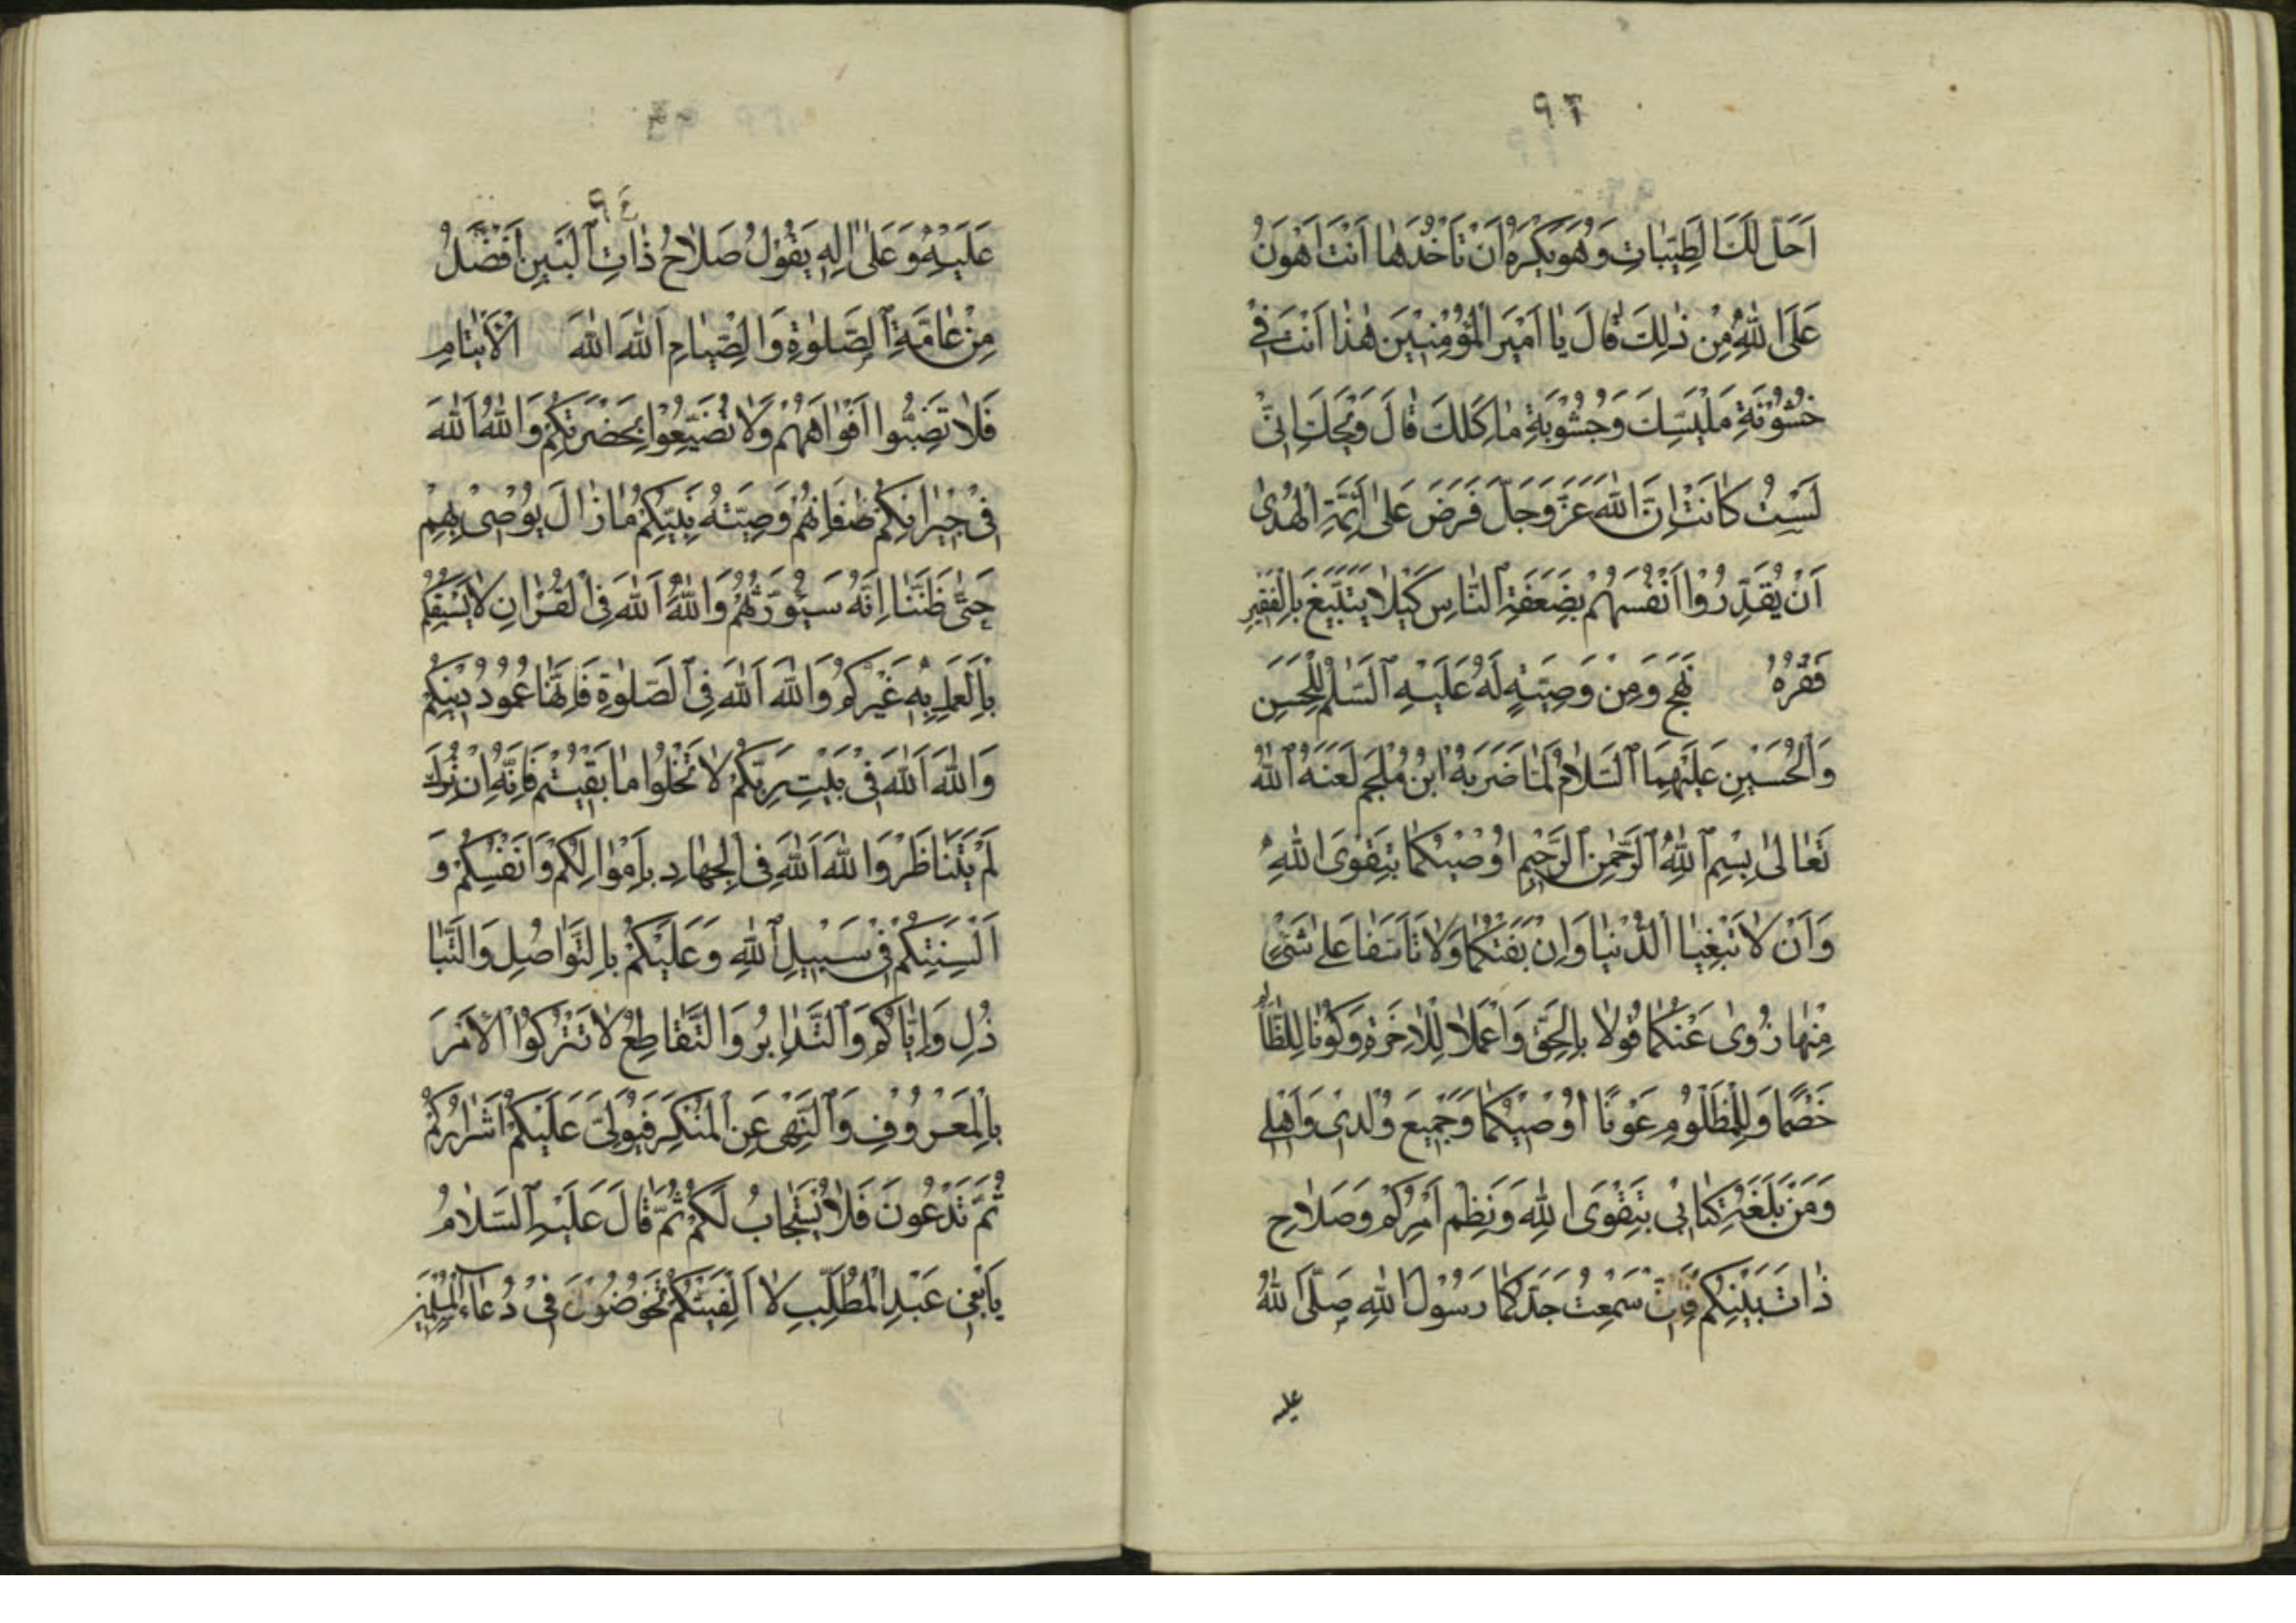 ٩٣
اَحَلَّ لَكَ الطَّيِّبَاتِ وَهُوَ يَكْرَهُ اَنْ تَاْخُذَهَا اَنْتَ اَهْوَنُ
عَلَى اللهِ مِنْ ذٰلِكَ قَالَ يَا اَمِيْرَ الْمُؤْمِنِيْنَ هٰذَا اَنْتَ فِيْ
خُشُوْنَةِ مَلْبَسِكَ وَجُشُوْبَةِ مَاكَلِكَ قَالَ وَيْحَكَ اِنِّيْ
لَسْتُ كَانْتَ اِنَّ اللهَ عَزَّ وَجَلَّ فَرَضَ عَلٰى اَئِمَّةِ الْهُدٰى
اَنْ يُقَدِّرُوْا اَنْفُسَهُمْ بِضَعَفَةِ النَّاسِ كَيْلَا يَتَبَيَّغَ بِالْفَقِيْرِ
فَقْرُهُ نَهَجَ وَمِنْ وَصِيَّةٍ لَهُ عَلَيْهِ السَّلٰمُ لِلْحَسَنِ
وَالْحُسَيْنِ عَلَيْهِمَا السَّلَامُ لَمَّا ضَرَبَهُ ابْنُ مُلْجَمٍ لَعَنَهُ اللهُ
تَعَالٰى بِسْمِ اللهِ الرَّحْمٰنِ الرَّحِيْمِ اُوْصِيْكُمَا بِتَقْوَى اللهِ
وَاَنْ لَا تَبْغِيَا الدُّنْيَا وَاِنْ بَغَتْكُمَا وَلَا تَاَسَّفَا عَلٰى شَيْءٍ
مِنْهَا زُوِىَ عَنْكُمَا قُوْلَا بِالْحَقِّ وَاعْمَلَا لِلْاٰخِرَةِ وَكُوْنَا لِلظَّا
خَصْمًا وَلِلْمَظْلُوْمِ عَوْنًا اُوْصِيْكُمَا وَجَمِيْعَ وُلْدِيْ وَاَهْلِيْ
وَمَنْ بَلَغَهُ كِتَابِيْ بِتَقْوَى اللهِ وَنَظْمِ اَمْرِكُمْ وَصَلَاحِ
ذَاتِ بَيْنِكُمْ فَاِنِّي سَمِعْتُ جَدَّكُمَا رَسُوْلَ اللهِ صَلَّى اللهُ
عليه
٩٤
عَلَيْهِ وَعَلٰى اٰلِهِ يَقُوْلُ صَلَاحُ ذَاتِ الْبَيْنِ اَفْضَلُ
مِنْ عَامَّةِ الصَّلٰوةِ وَالصِّيَامِ اَللهَ اللهَ الْاَيْتَامِ
فَلَا تَضِبُّوا اَفْوَاهَهُمْ وَلَا تُضَيِّعُوْا بِحَضْرَتِكُمْ وَاللهَ اَللهَ
فِيْ جِيْرَانِكُمْ فَاِنَّهُمْ وَصِيَّتُهُ نَبِيِّكُمْ مَا زَالَ يُوْصِيْ بِهِمْ
حَتّٰى ظَنَنَّا اِنَّهُ سَيُوَرِّثُهُمْ وَاللهَ اَللهَ فِي الْقُرْاٰنِ لَا يَسْبِقُكُمْ
بِالْعَمَلِ بِهِ غَيْرُكُمْ وَاللهَ اَللهَ فِي الصَّلٰوةِ فَاِنَّهَا عَمُوْدُ دِيْنِكُمْ
وَاللهَ اَللهَ فِيْ بَيْتِ رَبِّكُمْ لَا تُخْلُوْا مَا بَقِيْتُمْ فَاِنَّهُ اِنْ تُرِكَ
لَمْ يَتَنَاظَرْ وَاللهَ اَللهَ فِي الْجِهَادِ بِاَمْوَالِكُمْ وَاَنْفُسِكُمْ وَ
اَلْسِنَتِكُمْ فِيْ سَبِيْلِ اللهِ وَعَلَيْكُمْ بِالتَّوَاصُلِ وَالتَّبَا
ذُلِ وَاِيَّاكُمْ وَالتَّدَابُرُ وَالتَّقَاطِعُ لَا تَتْرُكُوْا الْاَمْرَ
بِالْمَعْرُوْفِ وَالنَّهْيَ عَنِ الْمُنْكَرِ فَيُوَلّٰى عَلَيْكُمْ اَشْرَارُكُمْ
ثُمَّ تَدْعُوْنَ فَلَا يُسْتَجَابُ لَكُمْ ثُمَّ قَالَ عَلَيْهِ السَّلَامُ
يَا بَنِيْ عَبْدِ الْمُطَّلِبِ لَا اُلْفِيَنَّكُمْ تَخُوْضُوْنَ فِيْ دُعَاءِ الْمُسْلِمِيْنَ